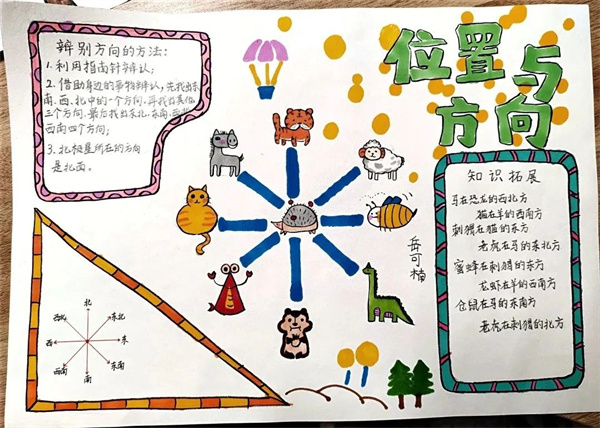 位置与
方向
辨别方向的方法:
1.利用指南针辨认;
2.借助身边的事物辨认,先找出东
南、西、北中的一个方向,再找出其他
三个方向,最后找出东北、东南、西北
西南四个方向;
3.北极星所在的方向
是北面。
知识拓展
马在恐龙的西北方
猫在羊的西南方
刺猬在猫的东方
老虎在马的东北方
蜜蜂在刺猬的东方
龙虾在羊的西南方
仓鼠在马的东南方
老虎在刺猬的北方
岳可楠
北
西北
东北
西
东
西南
东南
南